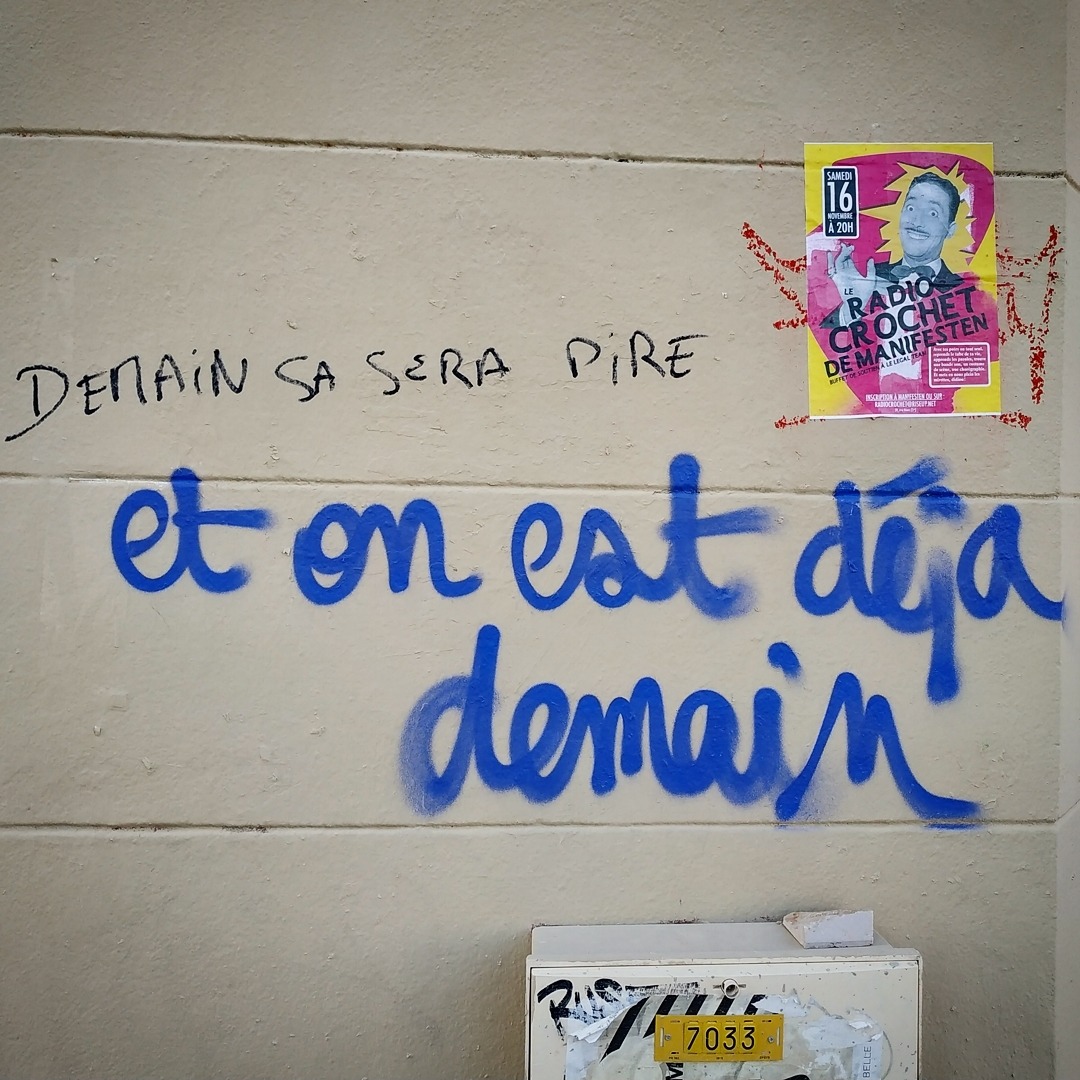 SAMEDI
16
NOVEMBRE
À 20H
LE
RADIO
CROCHET
DE MANIFESTEN
BUFFET DE SOUTIEN À LE LEGAL TEAM
INSCRIPTION À MANIFESTEN OU SUR :
RADIOCROCHET@RISEUP.NET
DEMAIN SA SERA PIRE
et on est déja
demain
7033
BELLE